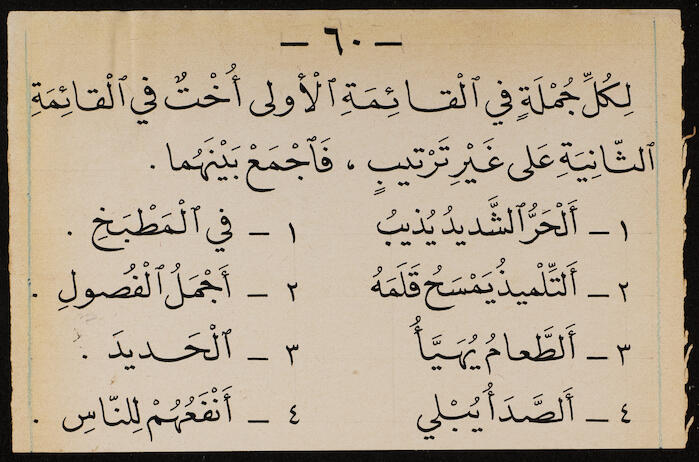 — ٦٠ —
لِكُلِّ جُمْلَةٍ في ٱلْقائِمَةِ ٱلْأولى أُخْتٌ في ٱلْقائِمَةِ
ٱلثّانِيَةِ عَلى غَيْرِ تَرْتيبٍ ، فَٱجْمَعْ بَيْنَهُما .
١ — أَلْحَرُّ ٱلشَّديدُ يُذيبُ ١ — في ٱلْمَطْبَخِ .
٢ — أَلتِّلْميذُ يَمْسَحُ قَلَمَهُ ٢ — أَجْمَلُ ٱلْفُصولِ .
٣ — أَلطَّعامُ يُهَيَّأُ ٣ — ٱلْحَديدَ .
٤ — أَلصَّدَأُ يُبْلي ٤ — أَنْفَعُهُمْ لِلنّاسِ .